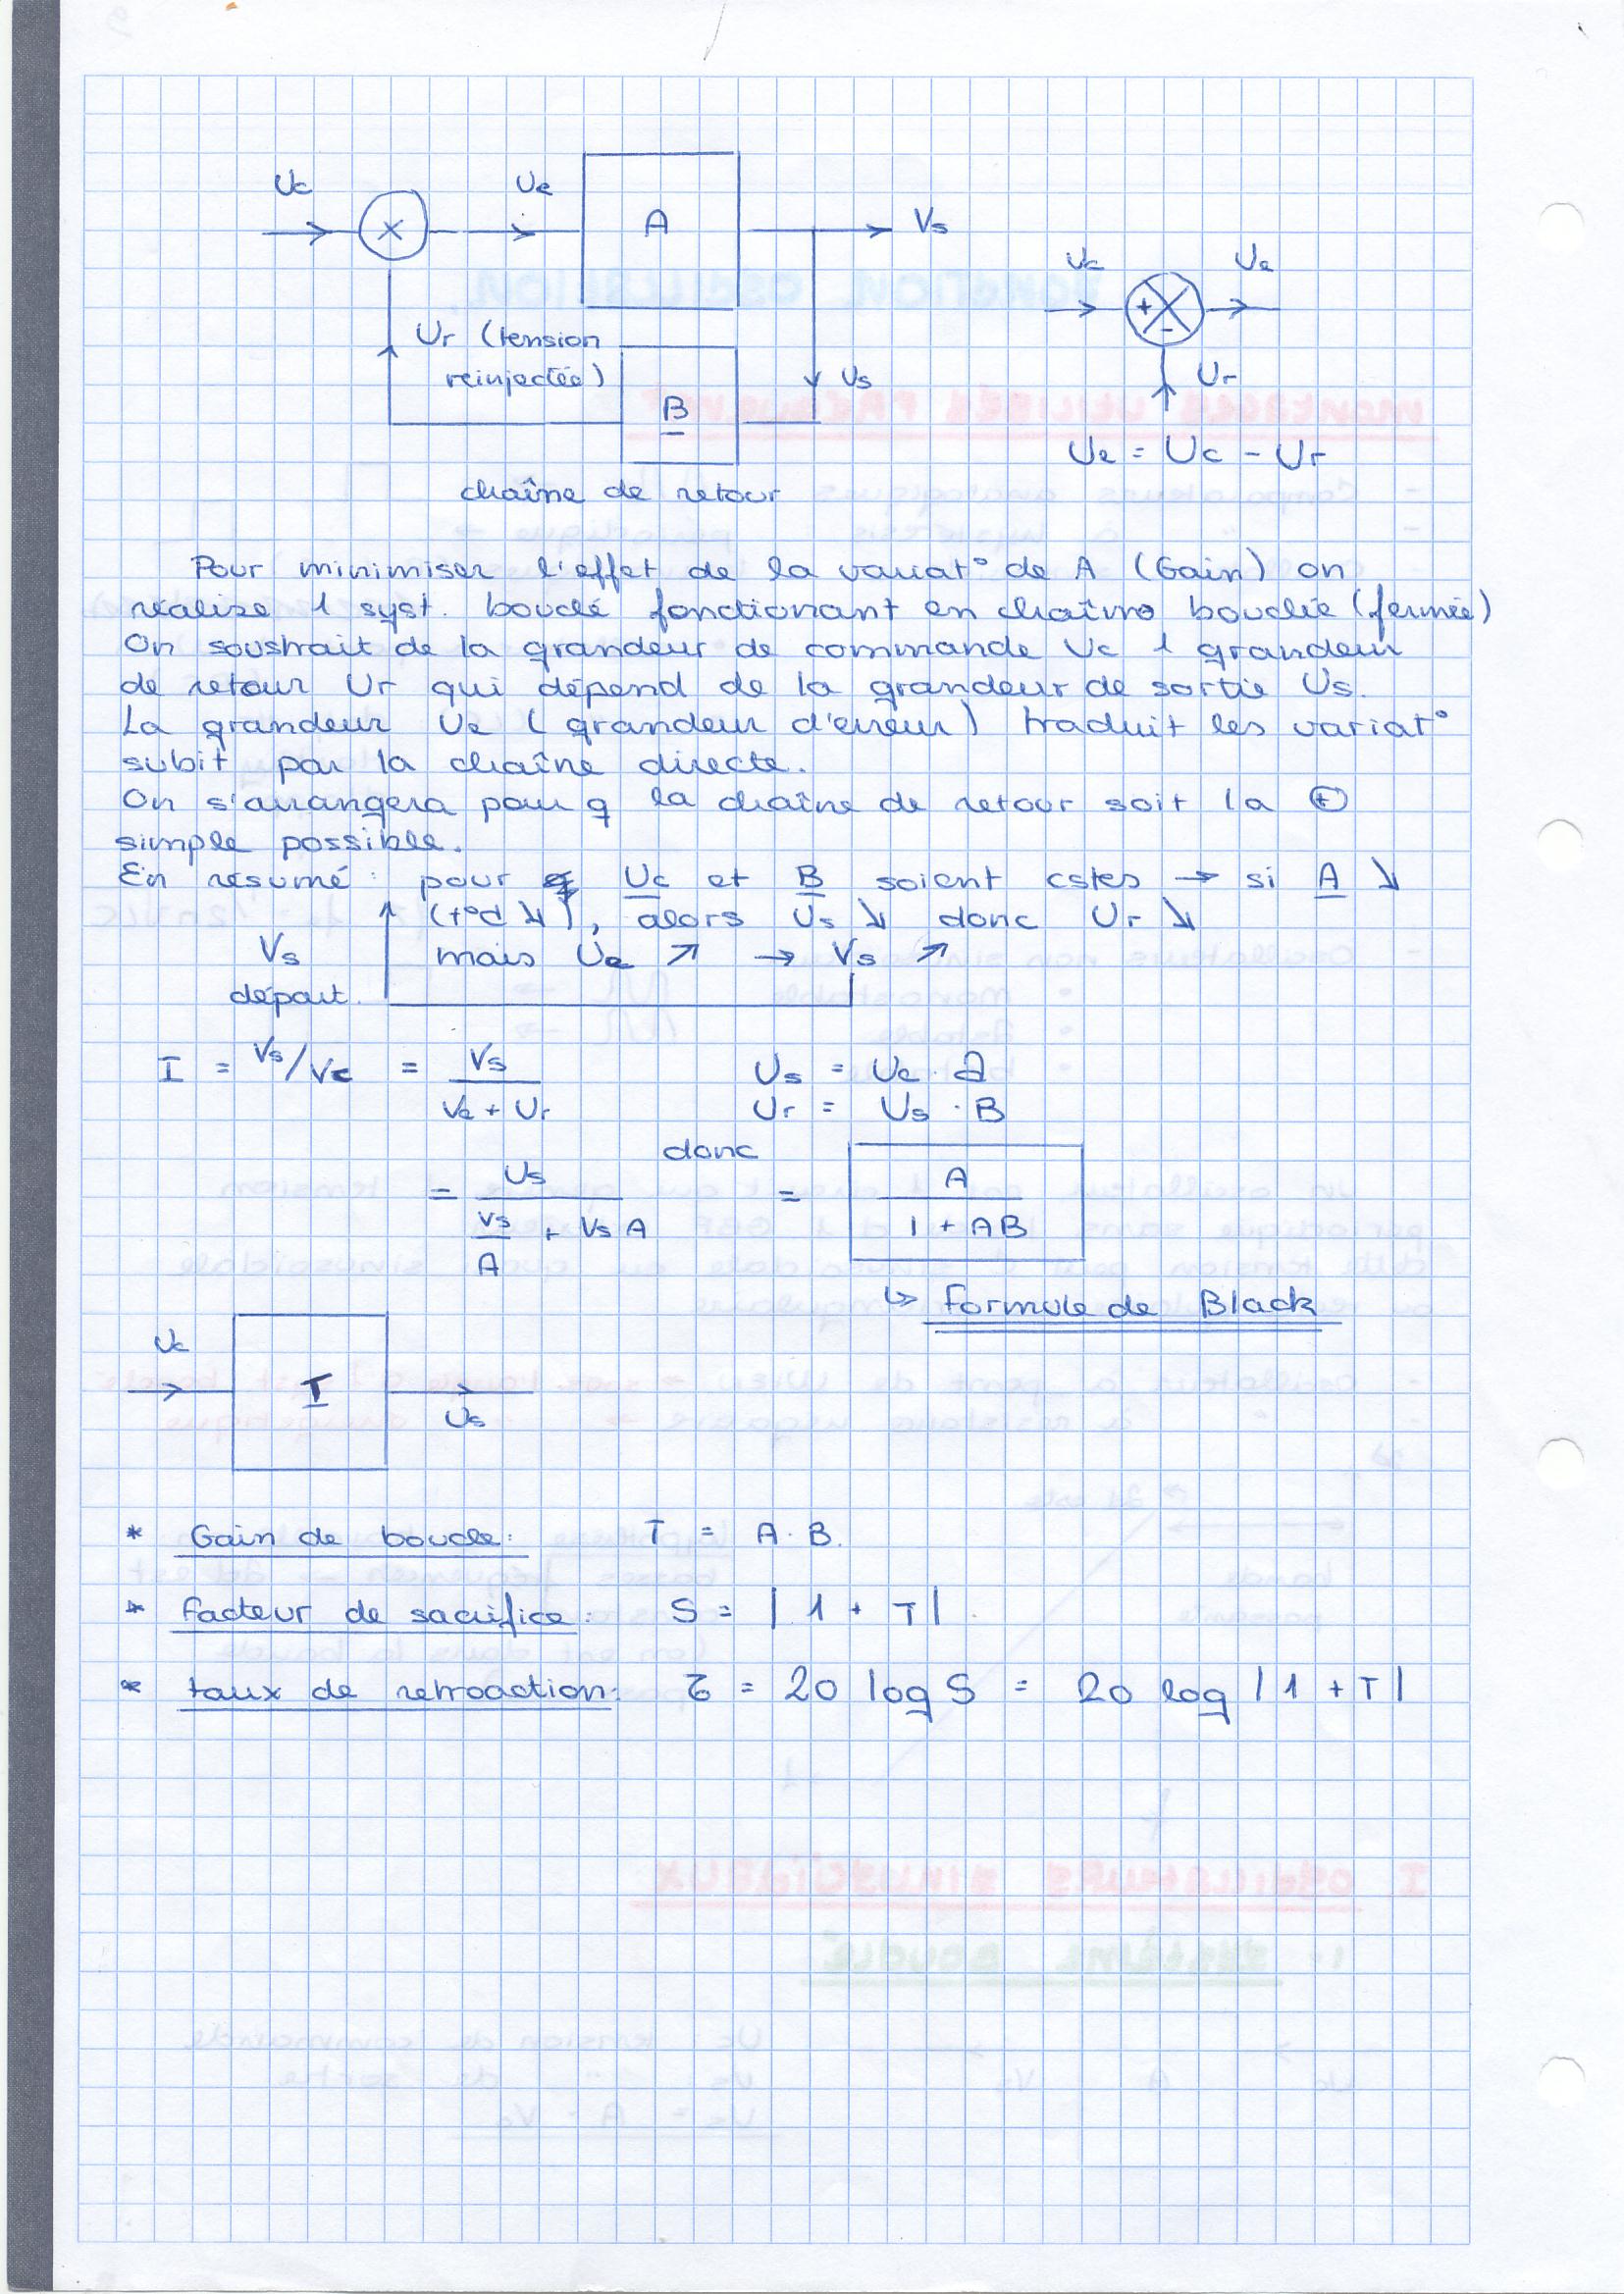 Uc Ue A Vs
Uc Ue
+ -
Ur (tension
reinjectée) B Us Ur
Ue = Uc - Ur
chaîne de retour
Pour minimiser l'effet de la variat° de A (Gain) on
réalise 1 syst. bouclé fonctionant en chaîne bouclée (fermée)
On soustrait de la grandeur de commande Uc 1 grandeur
de retour Ur qui dépend de la grandeur de sortie Us.
La grandeur Ue (grandeur d'erreur) traduit les variat°
subit par la chaîne directe.
On s'arrangera pour q la chaîne de retour soit la ⊕
simple possible.
En résumé : pour Uc et B soient cstes → si A ↘
(t°d ↘), alors Us ↘ donc Ur ↘
Vs mais Ue ↗ → Vs ↗
départ.
T = Vs/Vc = Vs / (Ve + Ur) Us = Ue . A
Ur = Us . B
donc
= Us / (Vs/A + Vs A) = A / (1 + AB)
↳ Formule de Black
Uc T Us
* Gain de boucle : T = A . B.
* facteur de sacrifice : S = | 1 + T |
* taux de retroaction : τ = 20 log S = 20 log | 1 + T |